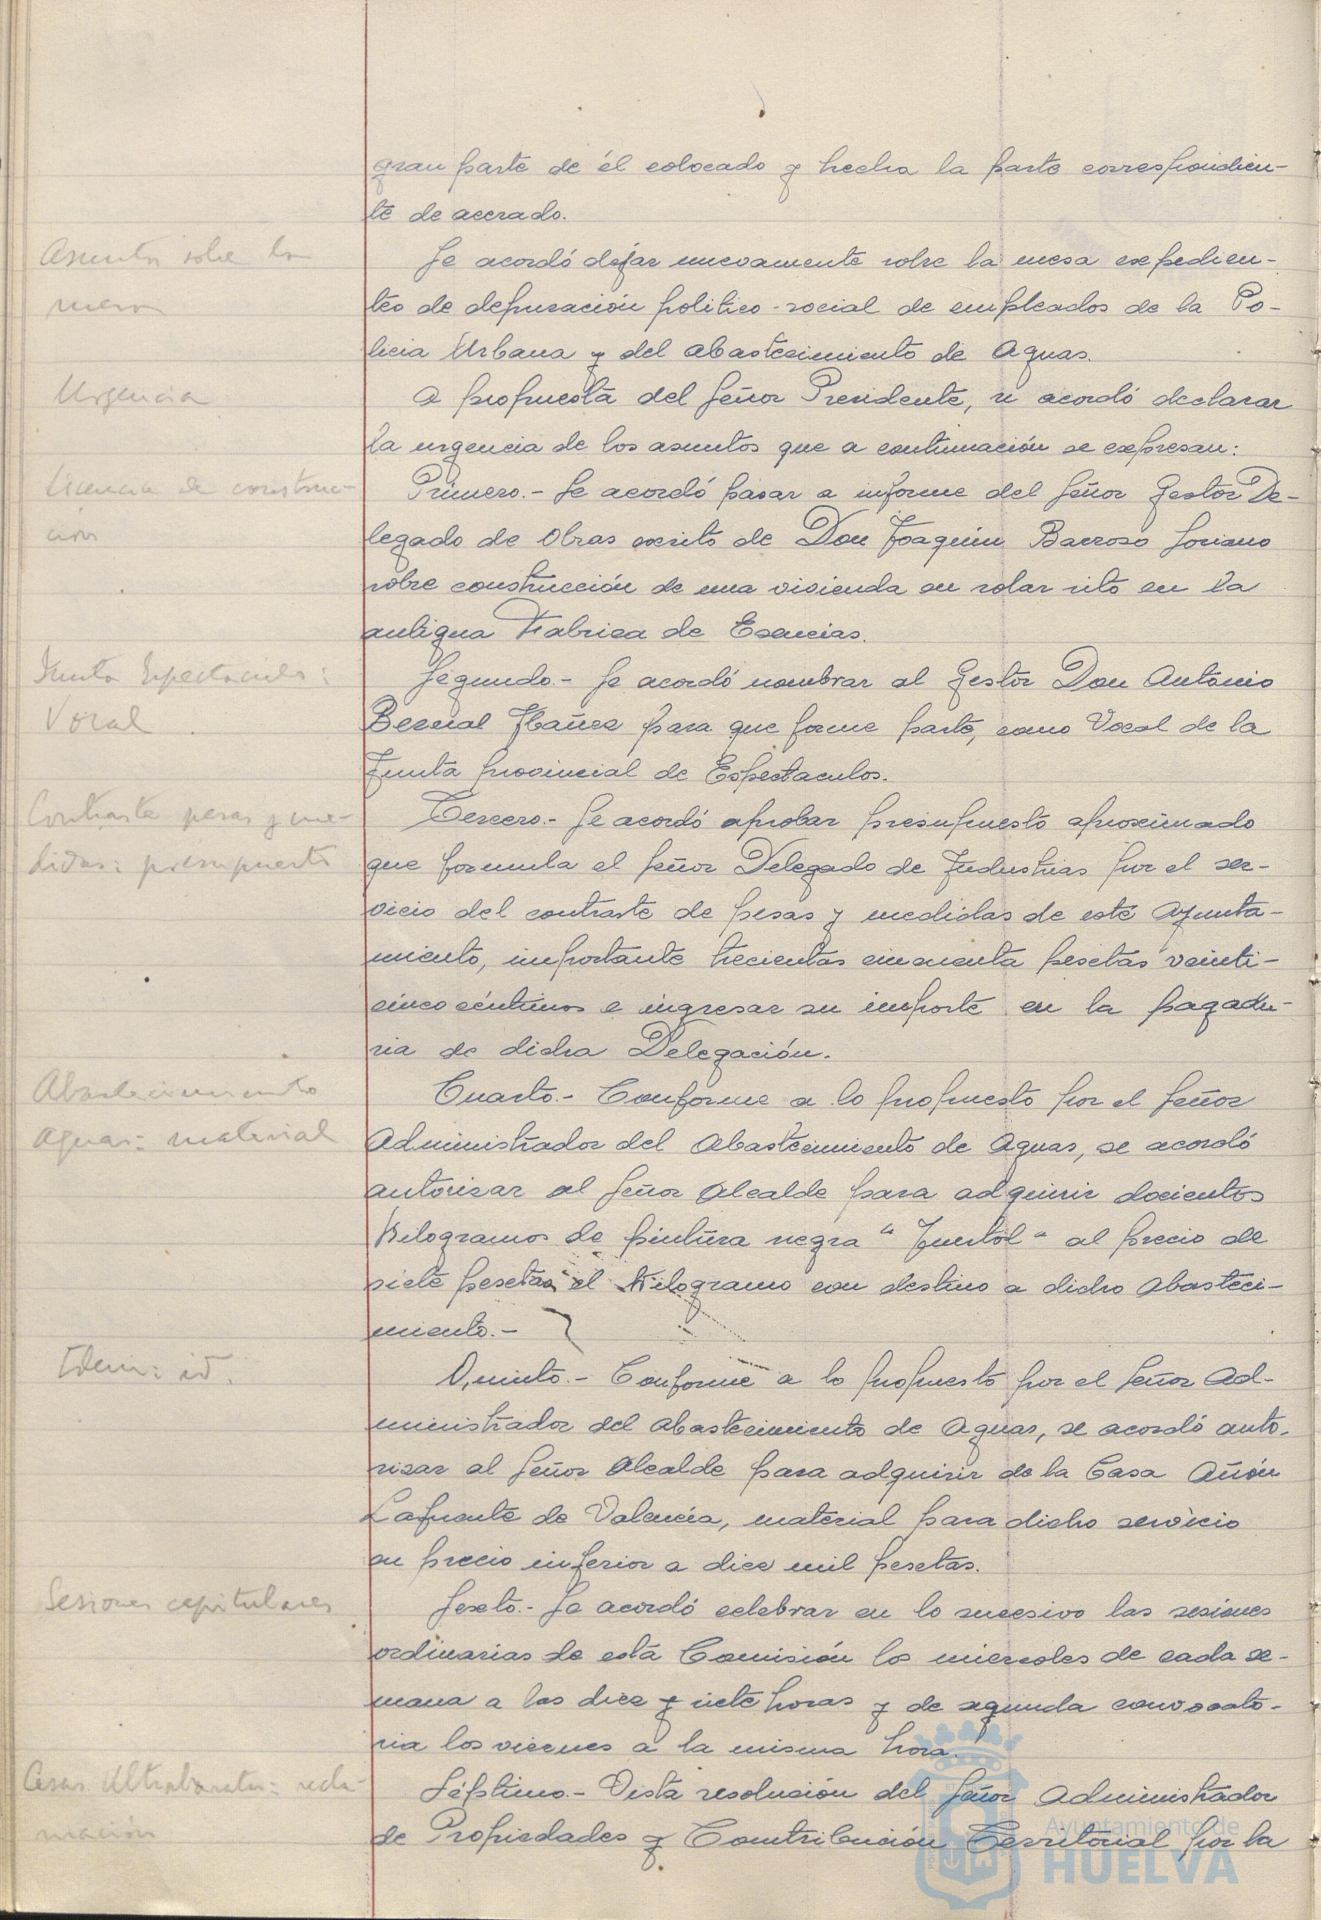 gran parte de él colocado y hecha la parte correspondien-
te de acerado.
Asuntos sobre la
mesa
Se acordó dejar nuevamente sobre la mesa expedien-
tes de depuración politico-social de empleados de la Po-
licia Urbana y del abastecimiento de Aguas.
Urgencia
A propuesta del Señor Presidente, se acordó declarar
la urgencia de los asuntos que a continuación se expresan:
Licencia de construc-
ción
Primero.- Se acordó pasar a informe del Señor Gestor De-
legado de Obras escrito de Don Joaquín Barroso Soriano
sobre construcción de una vivienda en solar sito en la
antigua Fabrica de Esencias.
Junta Espectaculos:
Vocal
Segundo.- Se acordó nombrar al Gestor Don Antonio
Bernal Ibañez para que forme parte, como Vocal de la
Junta provincial de Espectaculos.
Contraste pesas y me-
didas: presupuesto
Tercero.- Se acordó aprobar presupuesto aproximado
que formula el Señor Delegado de Industrias por el ser-
vicio del contraste de pesas y medidas de este Ayunta-
miento, importante trecientas cincuenta pesetas veinti-
cinco céntimos e ingresar su importe en la pagadu-
ria de dicha Delegación.
Abastecimiento
Aguas: material
Cuarto.- Conforme a lo propuesto por el Señor
Administrador del Abastecimiento de Aguas, se acordó
autorizar al Señor Alcalde para adquirir docientos
Kilogramos de pintura negra "Juntol" al precio de
siete pesetas el Kilogramo con destino a dicho Abasteci-
miento.-
Idem: id.
Quinto.- Conforme a lo propuesto por el Señor Ad-
ministrador del Abastecimiento de Aguas, se acordó auto-
rizar al Señor Alcalde para adquirir de la Casa Añón
Lafuente de Valencia, material para dicho servicio
en precio inferior a diez mil pesetas.
Sesiones capitulares
Sexto.- Se acordó celebrar en lo sucesivo las sesiones
ordinarias de esta Comisión los miercoles de cada se-
mana a las diez y siete horas y de segunda convocato-
ria los viernes a la misma hora.
Casas Ultrabaratas: recla-
mación
Séptimo.- Vista resolución del Señor Administrador
de Propiedades y Contribución Territorial por la
Ayuntamiento de
HUELVA